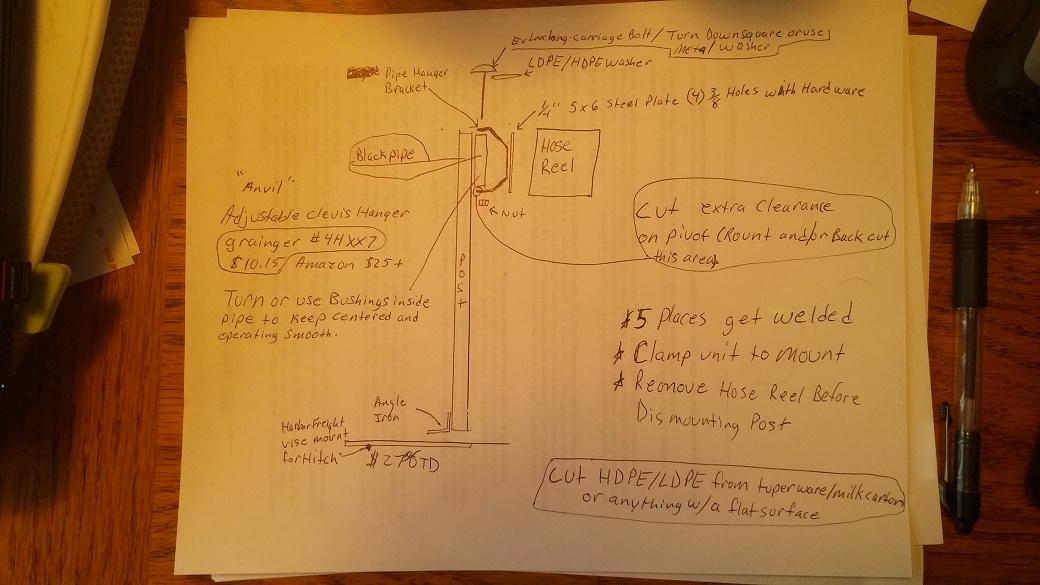 Extra long-carriage Bolt/ Turn Down square or use
metal washer
LDPE/HDPE washer
Pipe Hanger
Bracket
1/4" 5x6 Steel Plate (4) 3/8 Holes with Hardware
Black pipe
Hose
Reel
"Anvil"
Adjustable clevis Hanger
grainger #4HXX7
$10.15/ Amazon $25+
Nut
Cut extra Clearance
on pivot (Rount and/or Back cut
this area.
POST
Turn or use Bushings inside
pipe to keep centered and
operating smooth.
5 Places get welded
Clamp unit to mount
Remove Hose Reel Before
Dismounting Post
Angle
Iron
Harbor Freight
vise mount
for Hitch
OTD
Cut HDPE/LDPE from tuperware/milk carton
or anything w/a flat surface